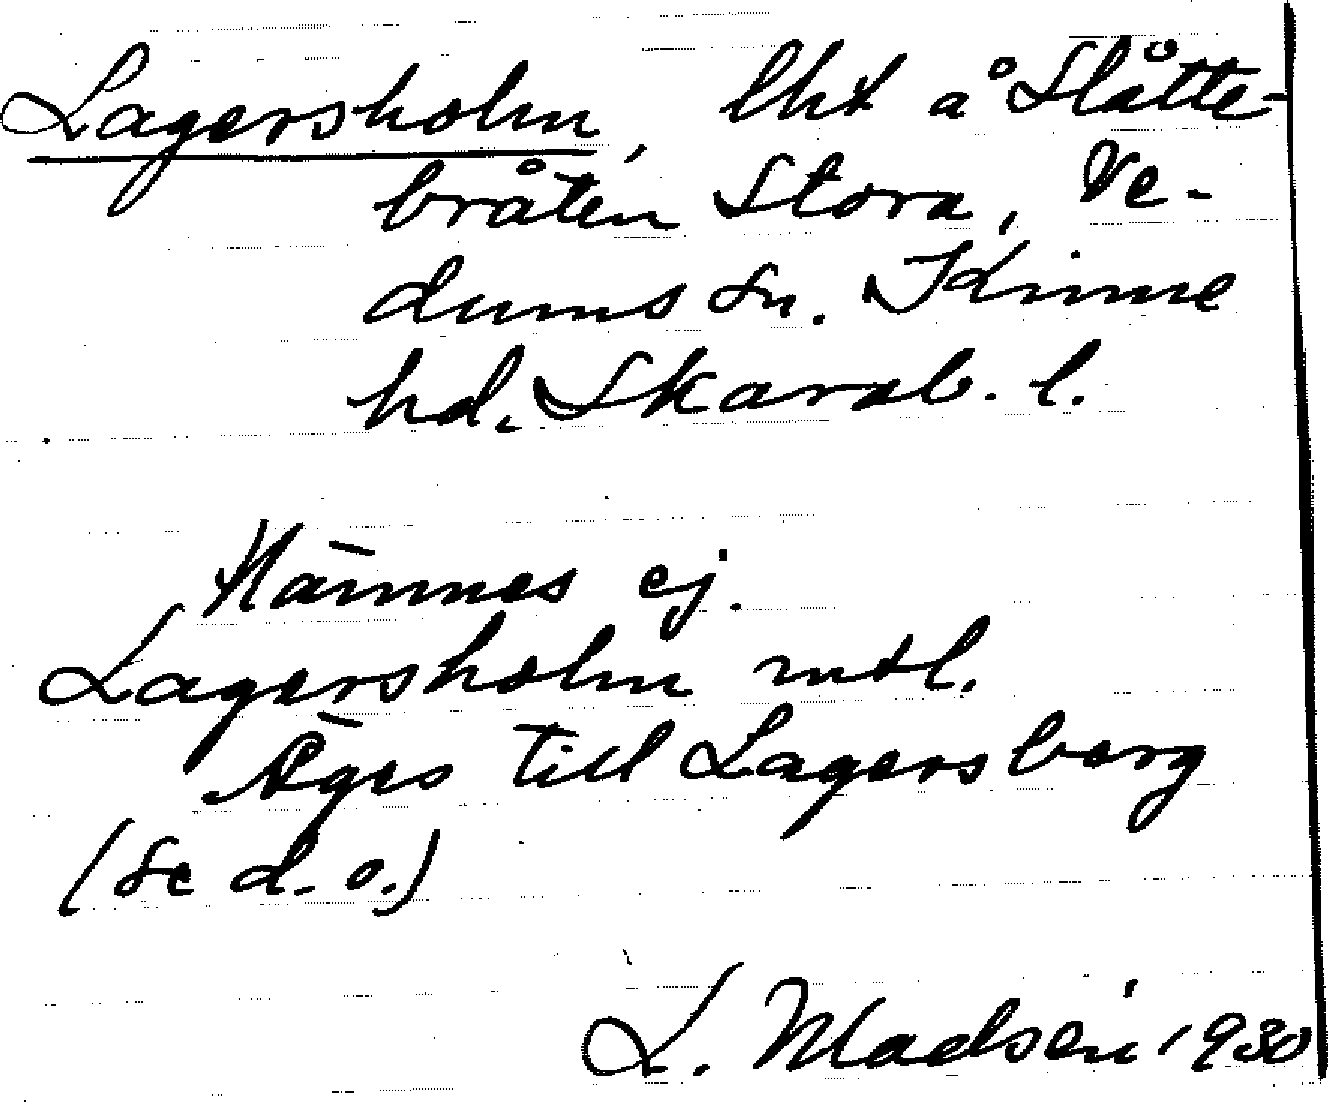 Lagersholm, lht å Slåtte-
bråten Stora, Ve-
dums sn. Kinne
hd. Skarab. l.
Nämnes ej.
Lagersholm mtl.
Äges till Lagersberg
(se d. o.)
L. Madsén 1930